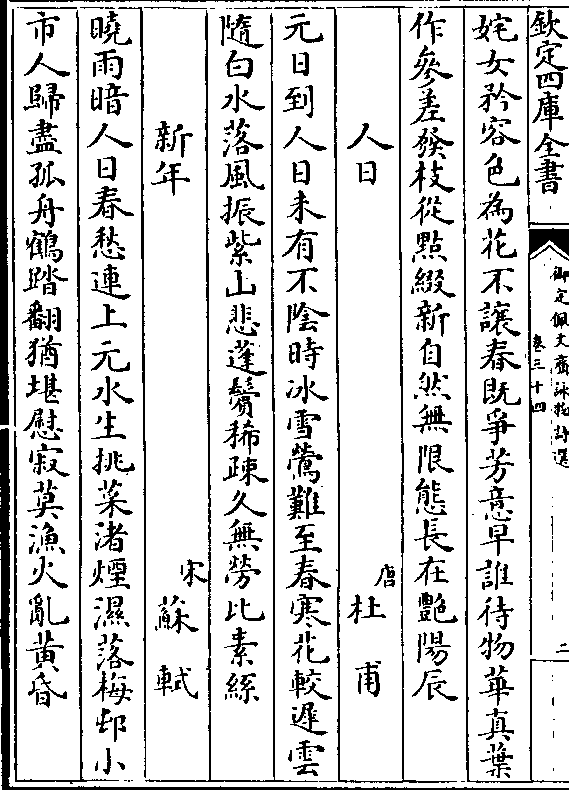 欽定四庫全書
御定佩文齋詠物詩選
卷三十四
二
姹女矜容色為花不讓春既爭芳意早誰待物華真葉
作參差發枝從點綴新自然無限態長在艷陽辰
人日
唐 杜甫
元日到人日未有不陰時冰雪鶯難至春寒花較遲雲
隨白水落風振紫山悲蓬鬢稀疎久無勞比素絲
新年
宋 蘇軾
曉雨暗人日春愁連上元水生挑菜渚煙濕落梅邨小
市人歸盡孤舟鶴踏翻猶堪慰寂莫漁火亂黃昏